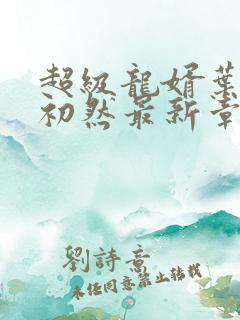 超級龍婿葉
初然最新章
劉詩意
未經同意禁止轉載